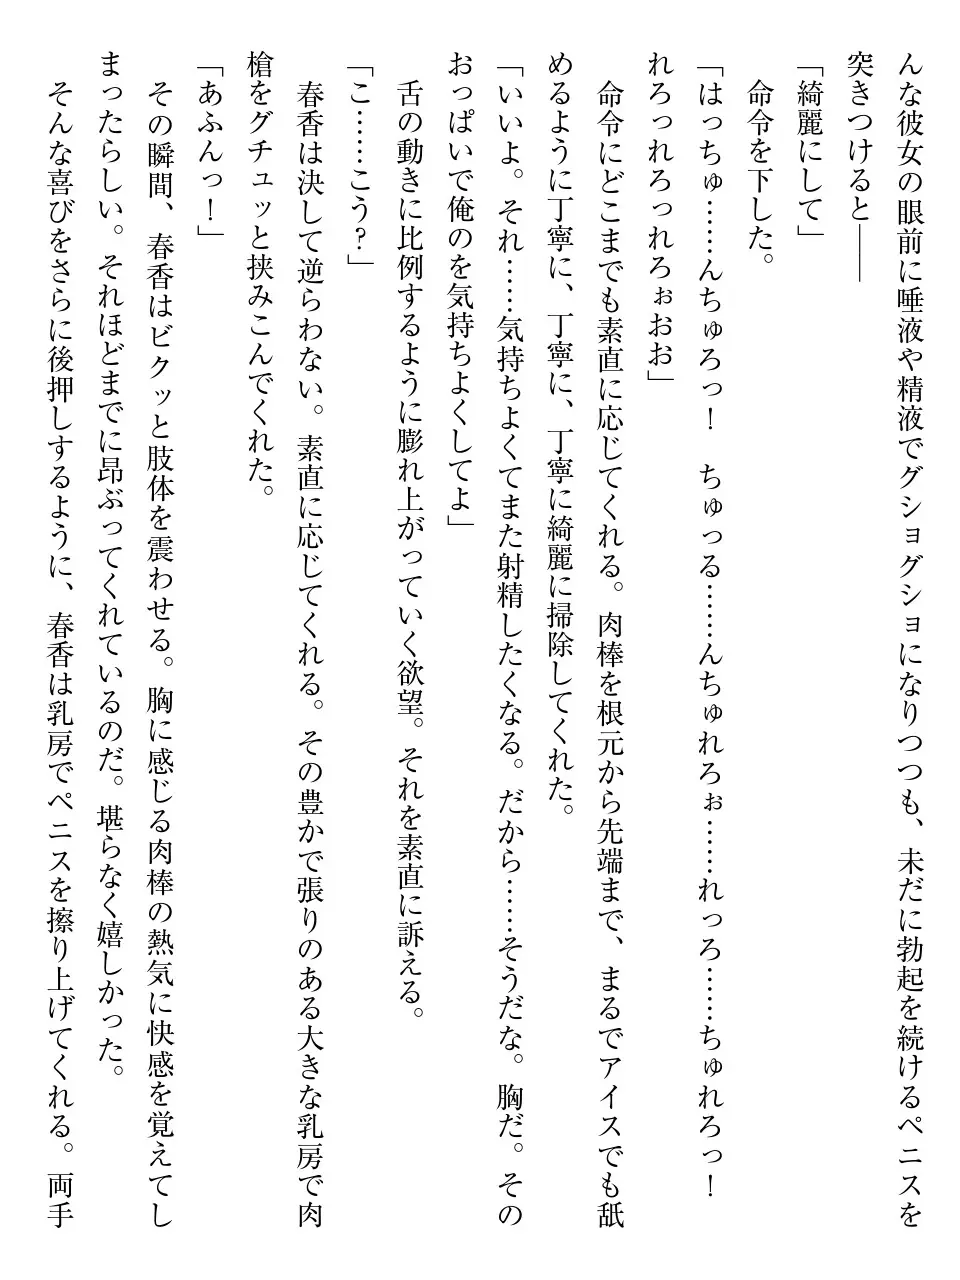 んな彼女の眼前に唾液や精液でグショグショになりつつも、未だに勃起を続けるペニスを
突きつけると――
「綺麗にして」
命令を下した。
「はっちゅ……んちゅろっ！　ちゅっる……んちゅれろぉ……れっろ……ちゅれろっ！
れろっれろっれろぉおお」
命令にどこまでも素直に応じてくれる。肉棒を根元から先端まで、まるでアイスでも舐
めるように丁寧に、丁寧に、丁寧に綺麗に掃除してくれた。
「いいよ。それ……気持ちよくてまた射精したくなる。だから……そうだな。胸だ。その
おっぱいで俺のを気持ちよくしてよ」
舌の動きに比例するように膨れ上がっていく欲望。それを素直に訴える。
「こ……こう？」
春香は決して逆らわない。素直に応じてくれる。その豊かで張りのある大きな乳房で肉
槍をグチュッと挟みこんでくれた。
「あふんっ！」
その瞬間、春香はビクッと肢体を震わせる。胸に感じる肉棒の熱気に快感を覚えてし
まったらしい。それほどまでに昂ぶってくれているのだ。堪らなく嬉しかった。
そんな喜びをさらに後押しするように、春香は乳房でペニスを擦り上げてくれる。両手